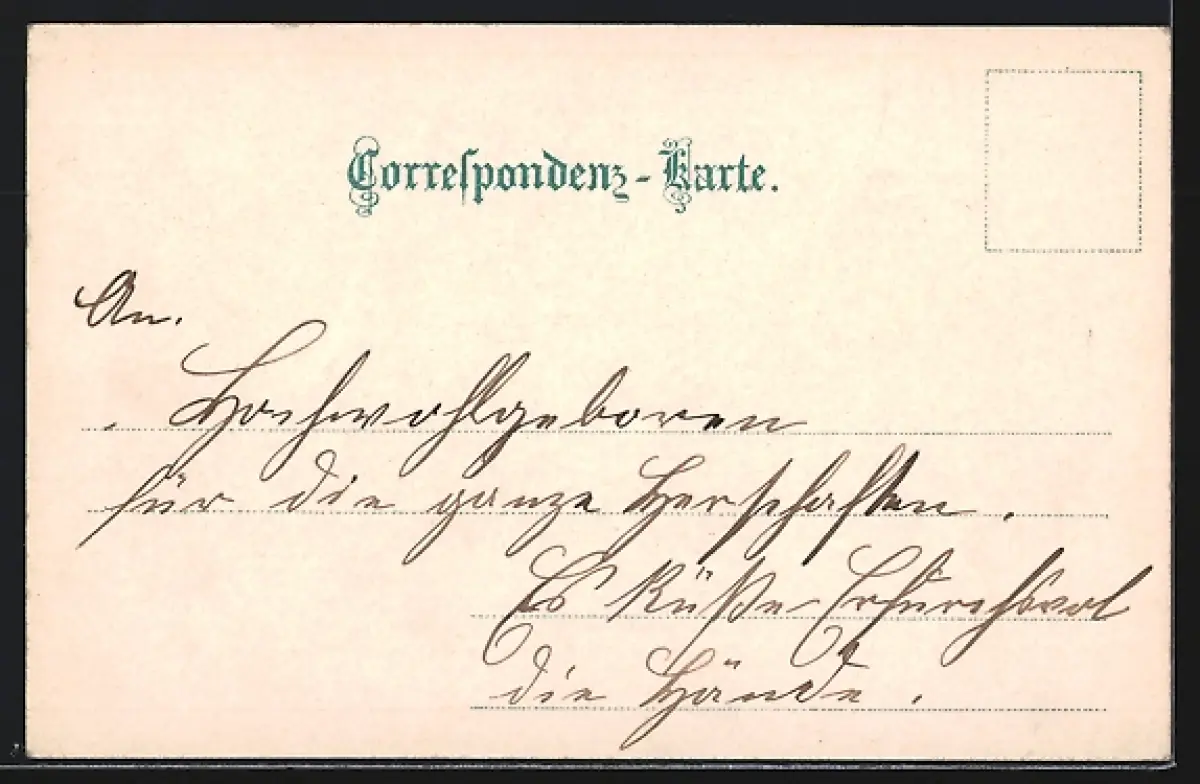 Correspondenz-Karte.
An.
Hochwohlgeboren
für die ganze Herschaften.
Es Küße Erfurchsvol
die Hände.